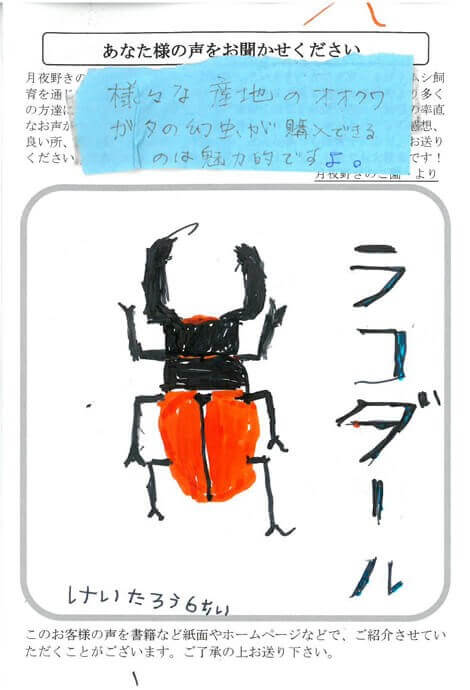 あなた様の声をお聞かせください
月夜野きの
ムシ飼
育を通じ
り多く
の方達に
の率直
なお声が
感想、
良い所、
お送り
ください
です！
様々な産地のオオクワ
ガタの幼虫が購入できる
のは魅力的ですよ。
月夜野きのこ園 より
ラコダール
けいたろう6さい
このお客様の声を書籍など紙面やホームページなどで、ご紹介させてい
ただくことがございます。ご了承の上お送り下さい。